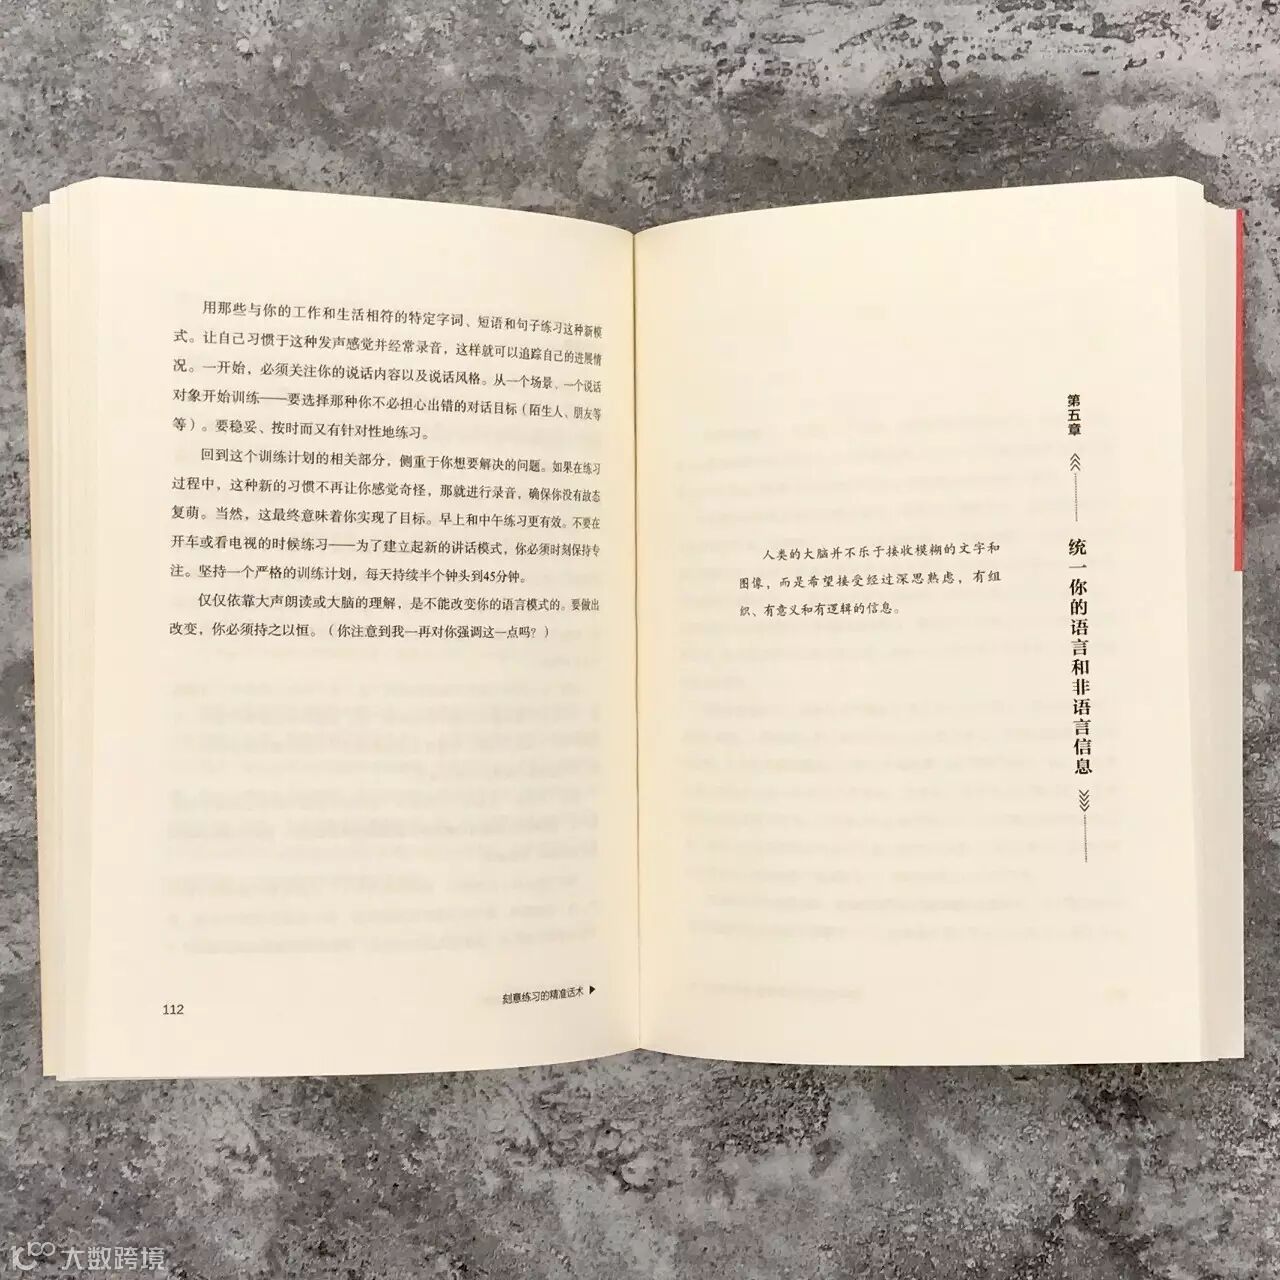 用那些与你的工作和生活相符的特定字词、短语和句子练习这种新模
式。让自己习惯于这种发声感觉并经常录音，这样就可以追踪自己的进展情
况。一开始，必须关注你的说话内容以及说话风格。从一个场景、一个说话
对象开始训练——要选择那种你不必担心出错的对话目标（陌生人、朋友等
等）。要稳妥、按时而又有针对性地练习。
回到这个训练计划的相关部分，侧重于你想要解决的问题。如果在练习
过程中，这种新的习惯不再让你感觉奇怪，那就进行录音，确保你没有故态
复萌。当然，这最终意味着你实现了目标。早上和中午练习更有效。不要在
开车或看电视的时候练习——为了建立起新的讲话模式，你必须时刻保持专
注。坚持一个严格的训练计划，每天持续半个钟头到45分钟。
仅仅依靠大声朗读或大脑的理解，是不能改变你的语言模式的。要做出
改变，你必须持之以恒。（你注意到我一再对你强调这一点吗？）
112
刻意练习的精准话术
第五章
统一你的语言和非语言信息
人类的大脑并不乐于接收模糊的文字和
图像，而是希望接受经过深思熟虑，有组
织、有意义和有逻辑的信息。
大数跨境